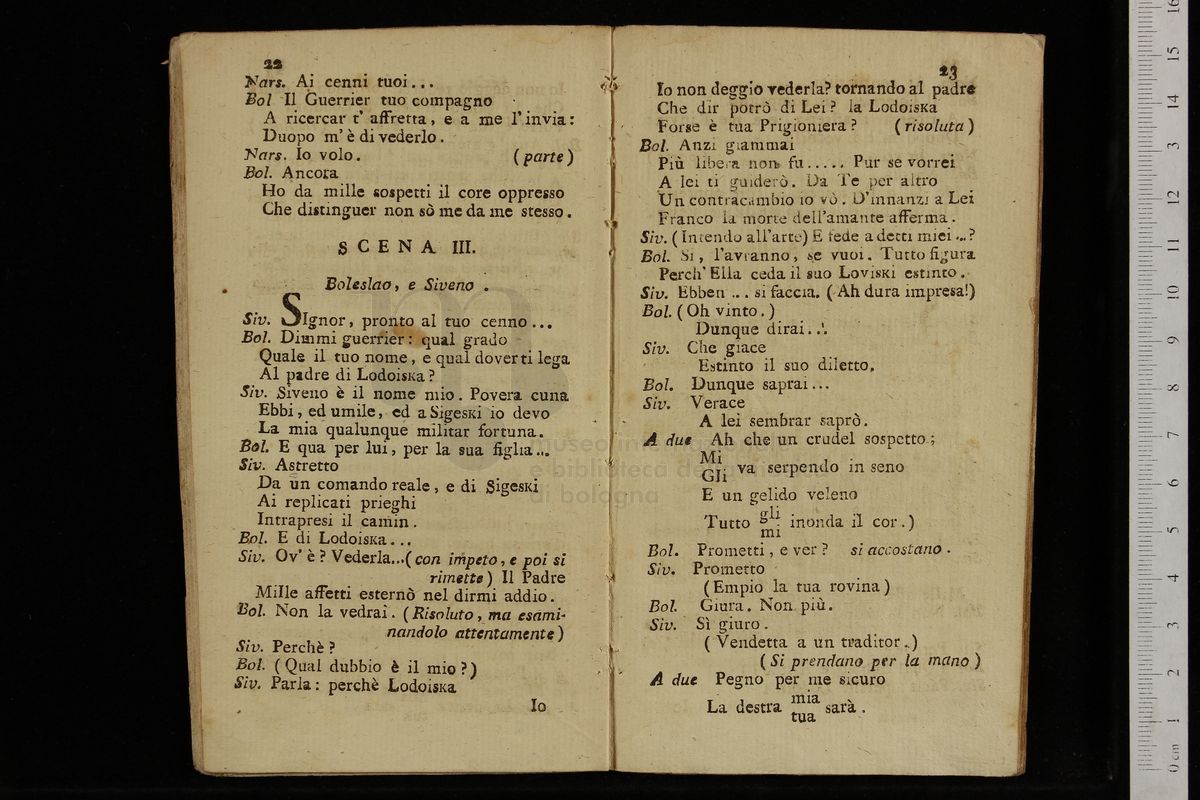 22
Nars. Ai cenni tuoi...
Bol Il Guerrier tuo compagno
A ricercar t' affretta, e a me l'invia:
Duopo m'è di vederlo.
Nars. Io volo. (parte)
Bol. Ancora
Ho da mille sospetti il core oppresso
Che distinguer non sò me da me stesso.
SCENA III.
Boleslao, e Siveno.
Siv. SIgnor, pronto al tuo cenno...
Bol. Dimmi guerrier: qual grado
Quale il tuo nome, e qual dover ti lega
Al padre di Lodoiska?
Siv. Siveno è il nome mio. Povera cuna
Ebbi, ed umile, ed a Sigeski io devo
La mia qualunque militar fortuna.
Bol. E qua per lui, per la sua figlia...
Siv. Astretto
Da un comando reale, e di Sigeski
Ai replicati prieghi
Intrapresi il camin.
Bol. E di Lodoiska...
Siv. Ov' è? Vederla...(con impeto, e poi si
rimette) Il Padre
Mille affetti esternò nel dirmi addio.
Bol. Non la vedrai. (Risoluto, ma esami-
nandolo attentamente)
Siv. Perchè?
Bol. (Qual dubbio è il mio?)
Siv. Parla: perchè Lodoiska
Io
23
Io non deggio vederla? tornando al padre
Che dir potrò di Lei? la Lodoiska
Forse è tua Prigioniera? (risoluta)
Bol. Anzi giammai
Più libera non fu..... Pur se vorrei
A lei ti guiderò. Da Te per altro
Un contracambio io vò. D'innanzi a Lei
Franco la morte dell'amante afferma.
Siv. (Intendo all'arte) E fede a detti miei...?
Bol. Si, l'avranno, se vuoi. Tutto figura
Perch' Ella ceda il suo Loviski estinto.
Siv. Ebben ... si faccia. (Ah dura impresa!)
Bol. (Oh vinto.)
Dunque dirai...
Siv. Che giace
Estinto il suo diletto.
Bol. Dunque saprai...
Siv. Verace
A lei sembrar saprò.
A due Ah che un crudel sospetto;
Mi
Gli va serpendo in seno
E un gelido veleno
Tutto gli
mi inonda il cor.)
Bol. Prometti, e ver? si accostano.
Siv. Prometto
(Empio la tua rovina)
Bol. Giura. Non più.
Siv. Sì giuro.
(Vendetta a un traditor.)
(Si prendano per la mano)
A due Pegno per me sicuro
La destra mia
tua sarà.
museo internazionale
e biblioteca della musica
di bologna
0 cm 1 2 3 4 5 6 7 8 9 10 11 12 13 14 15 16